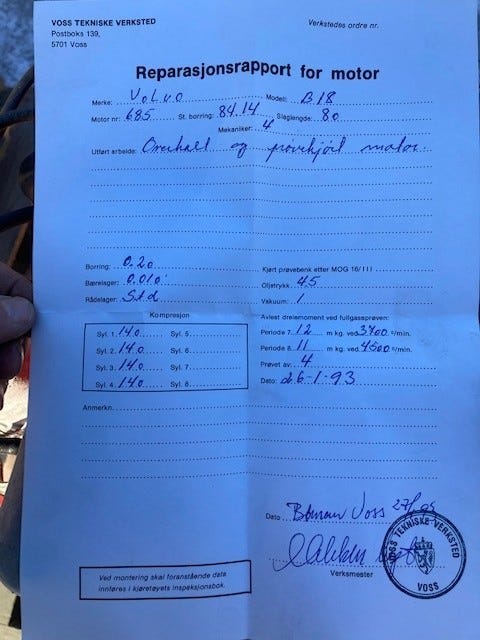 VOSS TEKNISKE VERKSTED
Postboks 139,
5701 Voss
Verkstedes ordre nr.
Reparasjonsrapport for motor
Merke: Volvo Modell: B18
Motor nr: 685 St. borring: 84.14 Slaglengde: 80
Mekaniker: 4
Utført arbeide: Overhalt og prøvekjørt motor.
Borring: 0.20
Bærelager: 0.010
Rådelager: Std
Kjørt prøvebenk etter MOG 16/III
Oljetrykk: 45
Vakuum: /
Kompresjon
Syl. 1. 140 Syl. 5
Syl. 2. 140 Syl. 6
Syl. 3. 140 Syl. 7
Syl. 4. 140 Syl. 8
Avlest dreiemoment ved fullgassprøven:
Periode 7. 12 m kg. ved 3700 o/min.
Periode 8. 11 m kg. ved 4500 o/min.
Prøvet av: 4
Dato: 26-1-93
Anmerkn.
Dato Bømoen Voss
Verksmester
VOSS TEKNISKE VERKSTED
VOSS
Ved montering skal foranstående data
innføres i kjøretøyets inspeksjonsbok.